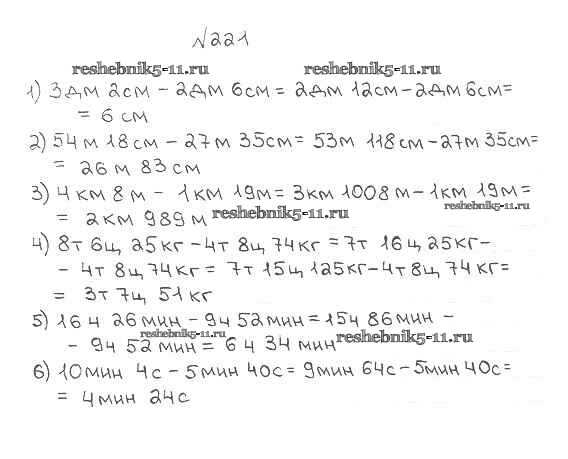 №221
reshebnik5-11.ru reshebnik5-11.ru
1) 3дм 2см - 2дм 6см = 2дм 12см - 2дм 6см =
= 6 см
2) 54 м 18 см - 27 м 35 см = 53м 118 см - 27м 35см =
= 26 м 83 см
3) 4 км 8 м - 1 км 19м = 3км 1008 м - 1км 19м =
= 2км 989 м reshebnik5-11.ru reshebnik5-11.ru
4) 8т 6ц 25кг - 4т 8ц 74кг = 7т 16ц 25кг -
- 4т 8ц 74кг = 7т 15ц 125кг - 4т 8ц 74кг =
= 3т 7ц 51кг
5) 16 ч 26 мин - 9ч 52мин = 15ч 86мин -
reshebnik5-11.ru
- 9ч 52 мин = 6 ч 34 мин reshebnik5-11.ru
6) 10мин 4с - 5мин 40с = 9мин 64с - 5мин 40с =
= 4мин 24с